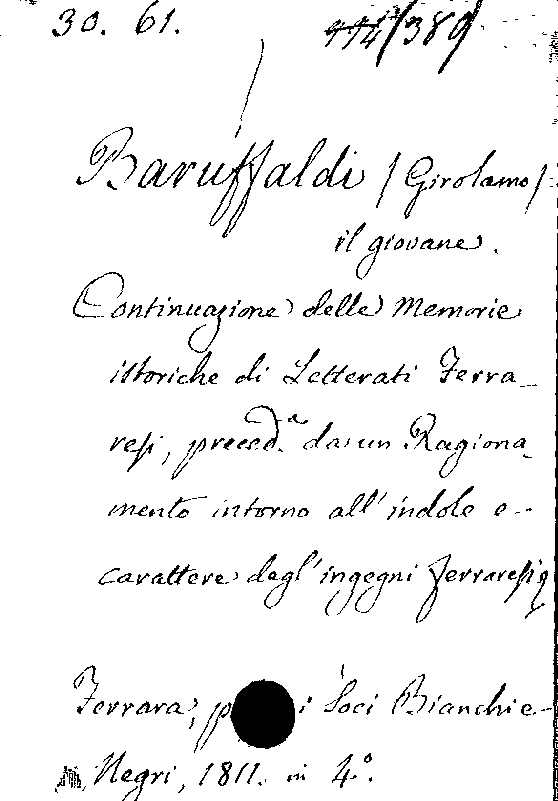 30. 61. 114/389
Baruffaldi / Girolamo /
il giovane.
Continuazione delle Memorie
istoriche di Letterati Ferra-
resi, preced.a da un Ragiona-
mento intorno all' indole e
carattere degl' ingegni ferraresi
Ferrara, i Soci Bianchi e
Negri, 1811. in 4.°